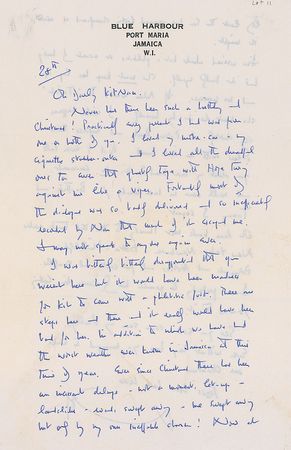 LOT 11
BLUE HARBOUR
PORT MARIA
JAMAICA
W.I.
28th
Oh Dearly
Never has there been such a and
Christmas! Practically every present I had was from
one or both of you. I loved my and my
cigarette and I loved all the dreadful
ones
against me like a viper. Fortunately most of
the dialogue was so badly delivered and so inefficiently
recorded by that much of it escaped me.
I may not speak to anyone again ever.
I was bitterly bitterly disappointed that you
weren't here but it would have been madness
for Kit to come with a phlebitic foot. There are
steps here and there and it really would have been
bad for her. In addition to which we have had
the worst weather ever known in Jamaica at this
time of year. Ever since Christmas there has been
an incessant deluge - not a moment's let-up -
landslides - roads swept away - me swept away
but only by my own ineffable charm! Now at